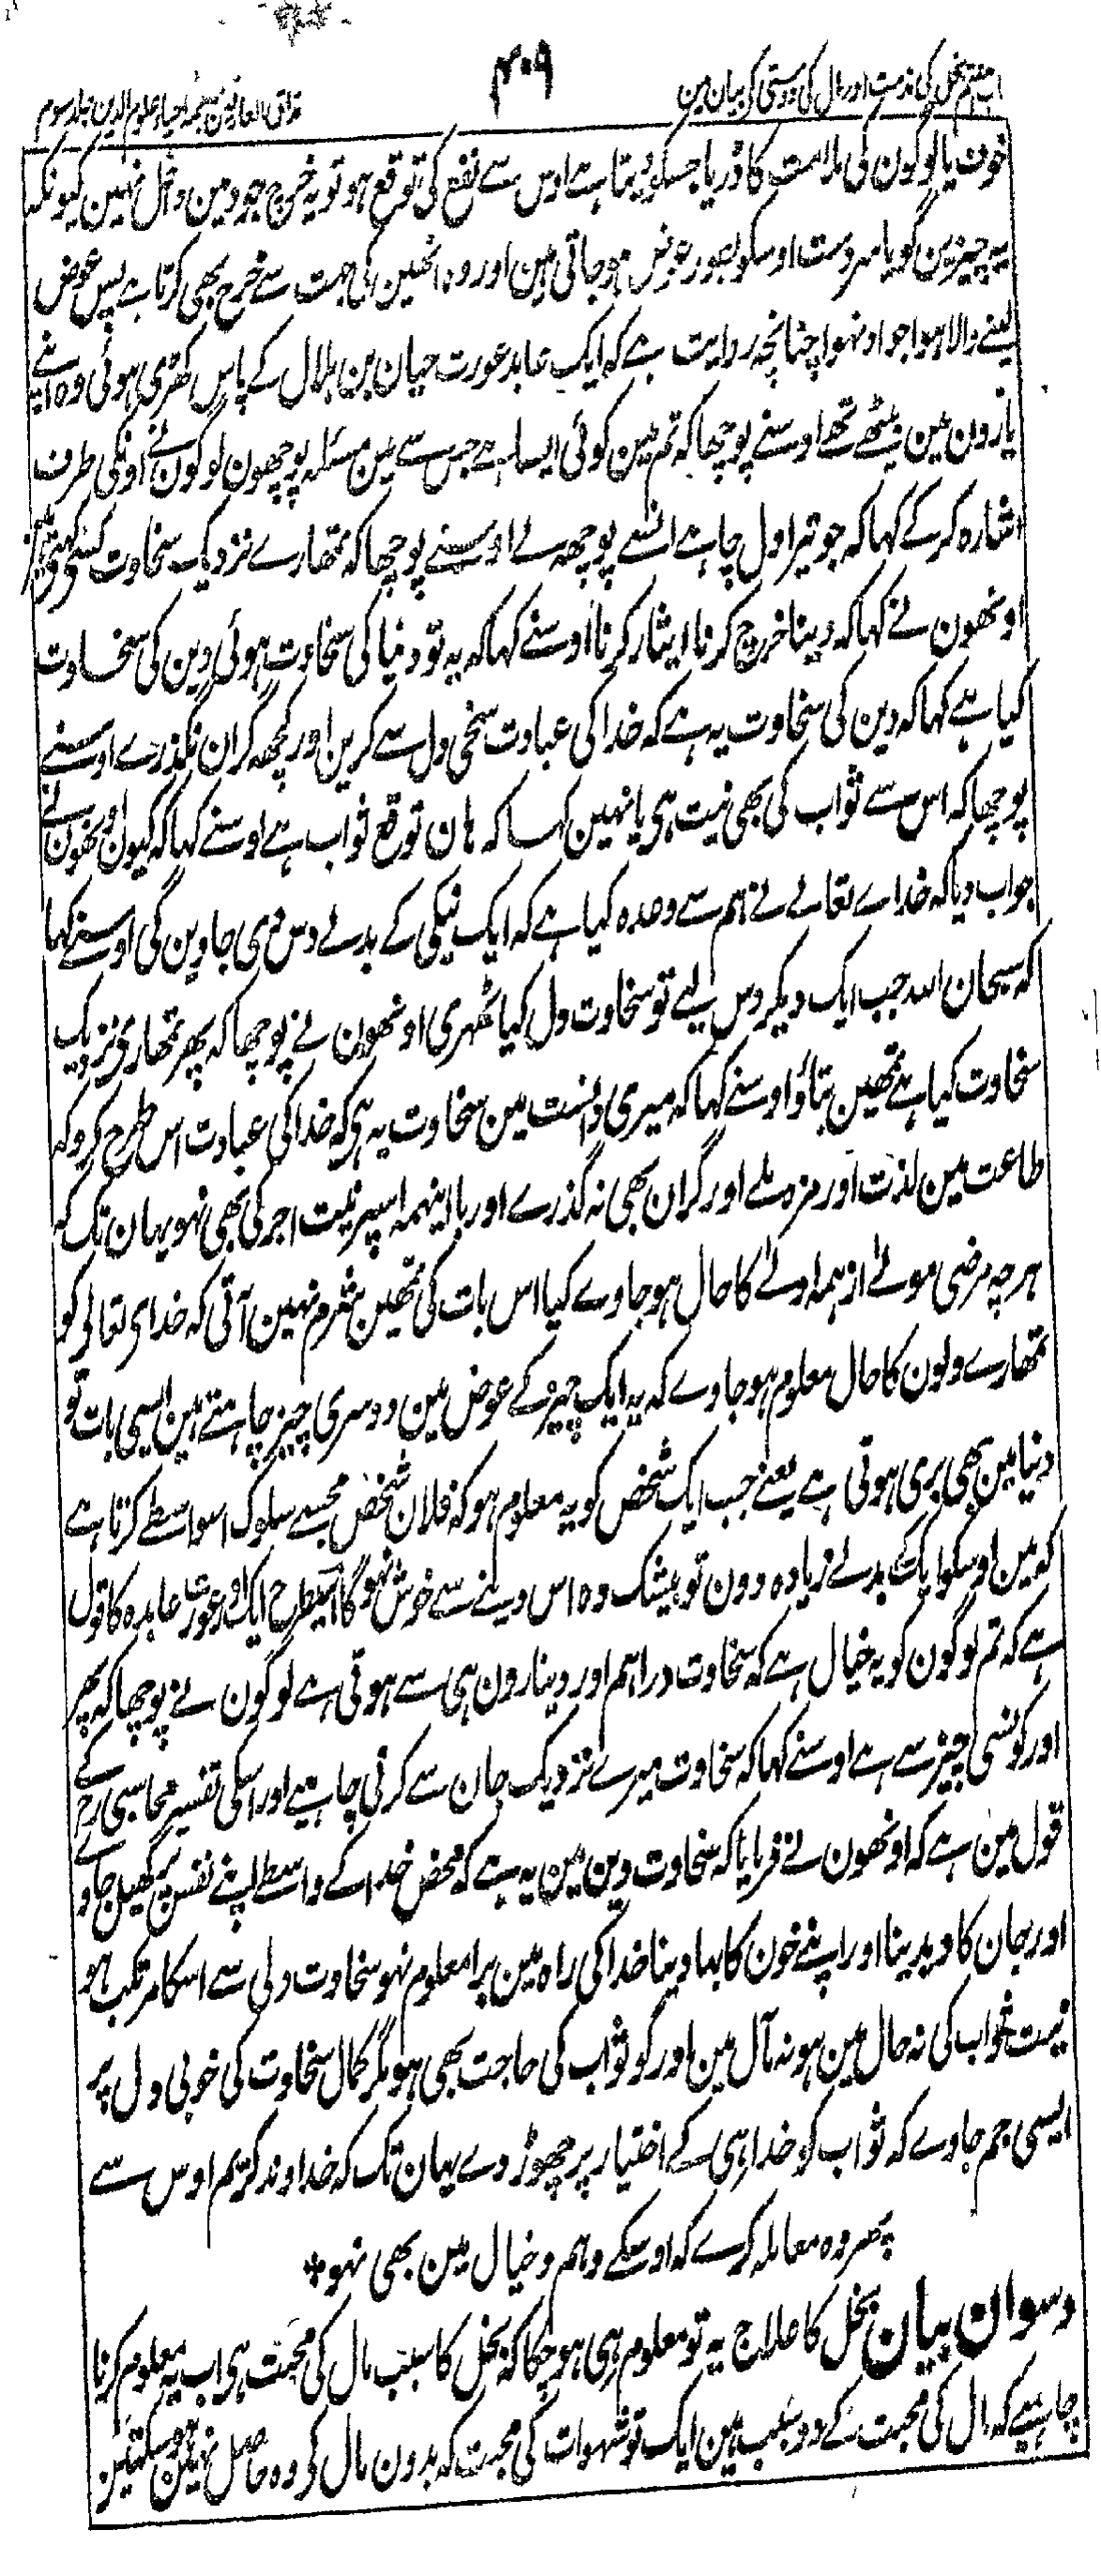 باب ہفتم بخل کی مذمت اور مال کی دوستی کے بیان مین
۴۰۹
مذاق العارفین ترجمہ احیاء علوم الدین جلد سوم
خون یا لوگون کی ملامت کا ڈر یا جسکو دیتا ہے اوس سے نفع کی توقع ہو تو یہ خرچ جود مین داخل نہین کیونکہ
یہ چیزین گویا سردست اوسکو بطور عوض ہو جاتی ہین اور وہ انھین کی جہت سے خرچ بھی کرتا ہے پس عوض
لینے والا ہوا جواد نہوا چنانچہ روایت ہے کہ ایک عابد عورت حیان بن ہلال کے پاس کھڑی ہوئی وہ اپنے
یارون مین بیٹھے تھے اوسنے پوچھا کہ تم مین کوئی ایسا ہے جس سے مین مسئلہ پوچھون لوگون نے اونکی طرف
اشارہ کرکے کہا کہ جو تیرا دل چاہے انسے پوچھ لے اوسنے پوچھا کہ تمھارے نزدیک سخاوت کسے کہتے ہین
اونھون نے کہا کہ دینا خرچ کرنا ایثار کرنا اوسنے کہا کہ یہ تو دنیا کی سخاوت ہوئی دین کی سخاوت
کیا ہے کہا کہ دین کی سخاوت یہ ہے کہ خدا کی عبادت سخی دل سے کرین اور کچھ گران نگذرے اوسنے
پوچھا کہ اس سے ثواب کی بھی نیت ہی یا نہین کہا کہ ہان توقع ثواب ہے اوسنے کہا کہ کیون اونھون نے
جواب دیا کہ خداے تعالے نے ہم سے وعدہ کیا ہے کہ ایک نیکی کے بدلے دس دی جاوین گی اوسنے کہا
کہ سبحان اللہ جب ایک دیکر دس لیے تو سخاوت دل کیا ٹھہری اونھون نے پوچھا کہ پھر تمھاری نزدیک
سخاوت کیا ہے تمھین بتاؤ اوسنے کہا کہ میری دانست مین سخاوت یہ ہی کہ خدا کی عبادت اس طرح کرو کہ
طاعت مین لذت اور مزہ ملے اور گران بھی نہ گذرے اور بااینہمہ اسپر نیت اجر کی بھی نہو یہان تک کہ
ہر چہ مرضی مولےٰ از ہمہ اولےٰ کا حال ہو جاوے کیا اس بات کی تمھین شرم نہین آتی کہ خداے تعالی کو
تمھارے دلون کا حال معلوم ہو جاوے کہ یہ ایک چیز کے عوض مین دوسری چیز چاہتے ہین ایسی بات تو
دنیا مین بھی بری ہوتی ہے یعنے جب ایک شخص کو یہ معلوم ہو کہ فلان شخص مجھسے سلوک اسواسطے کرتا ہے
کہ مین اوسکو ایک کے بدلے زیادہ دون تو بیشک وہ اس دینے سے خوش نہوگا اسیطرح ایک اور عورت عابدہ کا قول
ہے کہ تم لوگون کو یہ خیال ہے کہ سخاوت دراہم اور دینارون ہی سے ہوتی ہے لوگون نے پوچھا کہ پھر
اور کونسی چیز سے ہے اوسنے کہا کہ سخاوت میرے نزدیک جان سے کرنی چاہیے اور اسکی تفسیر محاسبی رح کے
قول مین ہے کہ اونھون نے فرمایا کہ سخاوت دین مین یہ ہے کہ محض خدا کے واسطے اپنے نفس پر کھیل جاوے
اور جان کا دیدینا اور اپنے خون کا بہا دینا خدا کی راہ مین برا معلوم نہو سخاوت دلی سے اسکا مرتکب ہو
نیت ثواب کی نہ حال مین ہو نہ مآل مین اور گو ثواب کی حاجت بھی ہو مگر کمال سخاوت کی خوبی دل پر
ایسی جم جاوے کہ ثواب کو خدا ہی کے اختیار پر چھوڑ دے یہان تک کہ خداوند کریم اوس سے
پھر وہ معاملہ کرے کہ اوسکے وہم و خیال مین بھی نہو *
دسوان بیان بخل کا علاج یہ تو معلوم ہی ہو چکا کہ بخل کا سبب مال کی محبت ہی اب یہ معلوم کرنا
چاہیے کہ مال کی محبت کے دو سبب ہین ایک تو شہوات کی محبت کہ بدون مال کی وہ حاصل نہین ہوسکتین